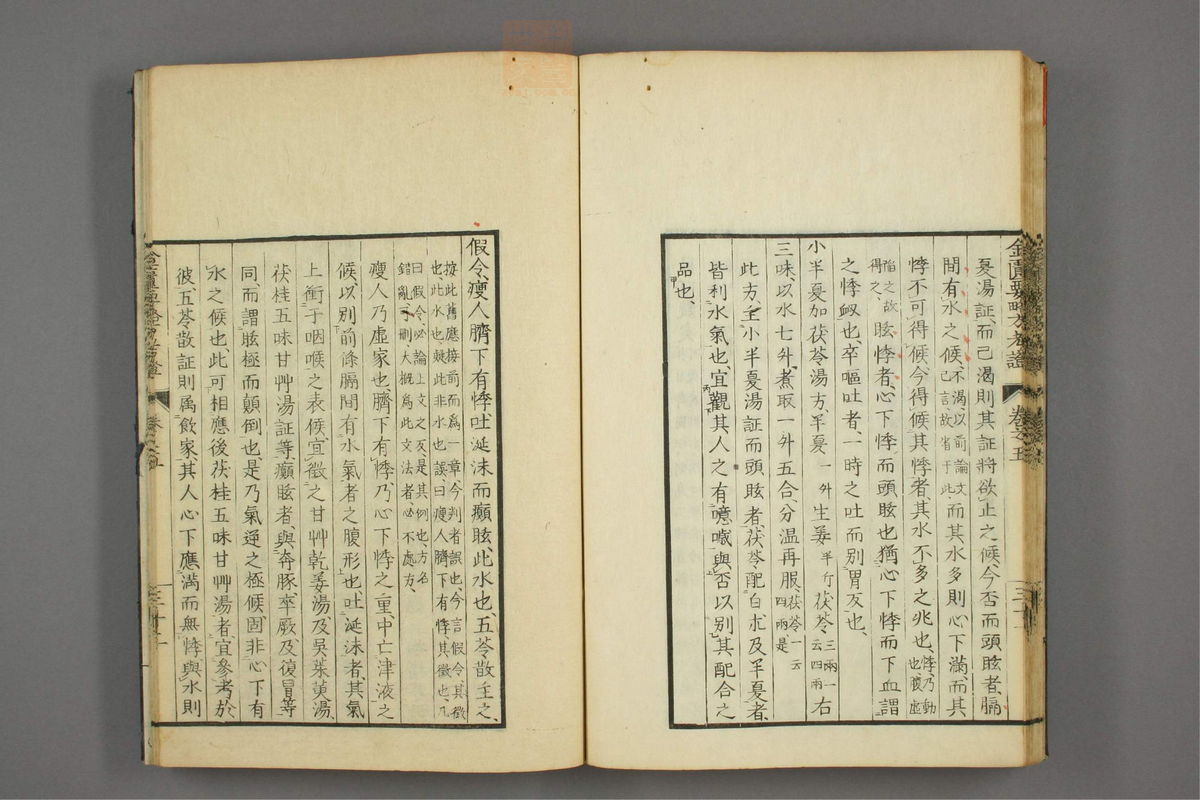 金匱要略方 卷之五
憂湯証、而己渴則其証將欲止之候、今否而頭眩者、膈
間有水之候、不渴、以前論文己言、故省于此而其水多則心下滿、而其
悸不可得候、今得候其悸者、其水不多之兆也、悸乃動也腹虛
陷之故得之、眩悸者、心下悸、而頭眩也、猶心下悸而下血、謂
之悸衂也、卒嘔吐者、一時之吐而別胃反也、
小半夏加茯苓湯方、半夏一升生姜半斤茯苓、三兩一云四兩右
三味、以水七升、煮取一升五合、分温再服、茯苓一云四兩、是
此方、主小半夏湯証而頭眩者、茯苓、配白朮及半夏者、
皆利水氣也、宜觀其人之有噫噦與否以別其配合之
品也、
假令瘦人臍下有悸、吐涎沫而癲眩、此水也、五苓散主之、
按此舊應接前而爲一章、今判者誤也、今言假令、其徵
也、此水也、疑此非水也誤、曰瘦人臍下有悸其徵也、凡
曰假令、必論上文之反、是其例也、方名
錯亂、予刪、大概爲此文法者、必不處方、
瘦人乃虛家也、臍下有悸、乃心下悸之重、中亡津液之
候、以別前條膈間有水氣者之腹形也、吐涎沫者、其氣
上衝于咽喉之表候、宜徵之甘艸乾姜湯及吳茱萸湯、
茯桂五味甘艸湯証等、癲眩者、與奔豚、卒厥、及復冒等
同、而謂眩極而顛倒也、是乃氣逆之極候固非心下有
水之候也、此可相應後茯桂五味甘艸湯者、宜參考於
彼、五苓散証則属飲家、其人心下應滿而無悸與水則
卷之五